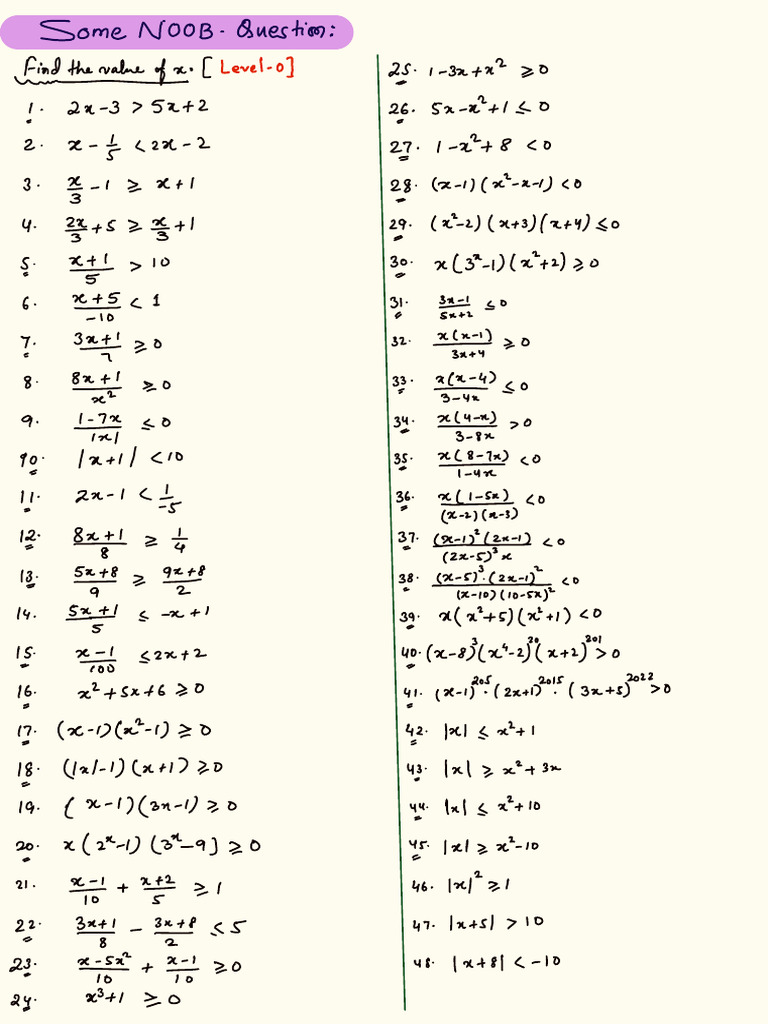 Some NOOB - Question:
Find the value of x. [Level-0]
1. 2x-3 > 5x+2
2. x - 1/5 < 2x-2
3. x/3 - 1 ≥ x+1
4. 2x/3 + 5 ≥ x/3 + 1
5. (x+1)/5 > 10
6. (x+5)/-10 < 1
7. (3x+1)/7 ≥ 0
8. (8x+1)/x² ≥ 0
9. (1-7x)/|x| ≤ 0
10. |x+1| < 10
11. 2x-1 < 1/-5
12. (8x+1)/8 ≥ 1/4
13. (5x+8)/9 ≥ (9x+8)/2
14. (5x+1)/5 ≤ -x+1
15. (x-1)/100 ≤ 2x+2
16. x²+5x+6 ≥ 0
17. (x-1)(x²-1) ≥ 0
18. (|x|-1)(x+1) ≥ 0
19. (x-1)(3x-1) ≥ 0
20. x(2ˣ-1)(3ˣ-9] ≥ 0
21. (x-1)/10 + (x+2)/5 ≥ 1
22. (3x+1)/8 - (3x+8)/2 ≤ 5
23. (x-5x²)/10 + (x-1)/10 ≥ 0
24. x³+1 ≥ 0
25. 1-3x+x² ≥ 0
26. 5x-x²+1 ≤ 0
27. 1-x²+8 < 0
28. (x-1)(x²-x-1) < 0
29. (x²-2)(x+3)(x+4) ≤ 0
30. x(3ˣ-1)(x²+2) ≥ 0
31. (3x-1)/(5x+2) ≤ 0
32. x(x-1)/(3x+4) ≥ 0
33. x(x-4)/(3-4x) ≤ 0
34. x(4-x)/(3-8x) > 0
35. x(8-7x)/(1-4x) < 0
36. x(1-5x)/(x-2)(x-3) < 0
37. (x-1)²(2x-1)/(2x-5)³x < 0
38. (x-5)³·(2x-1)²/(x-10)(10-5x)² < 0
39. x(x²+5)(x²+1) < 0
40. (x-8)³(x⁴-2)²⁰(x+2)²⁰¹ > 0
41. (x-1)²⁰⁵·(2x+1)²⁰¹⁵·(3x+5)²⁰²² > 0
42. |x| ≤ x²+1
43. |x| ≥ x²+3x
44. |x| ≤ x²+10
45. |x| ≥ x²-10
46. |x|² ≥ 1
47. |x+5| > 10
48. |x+8| < -10